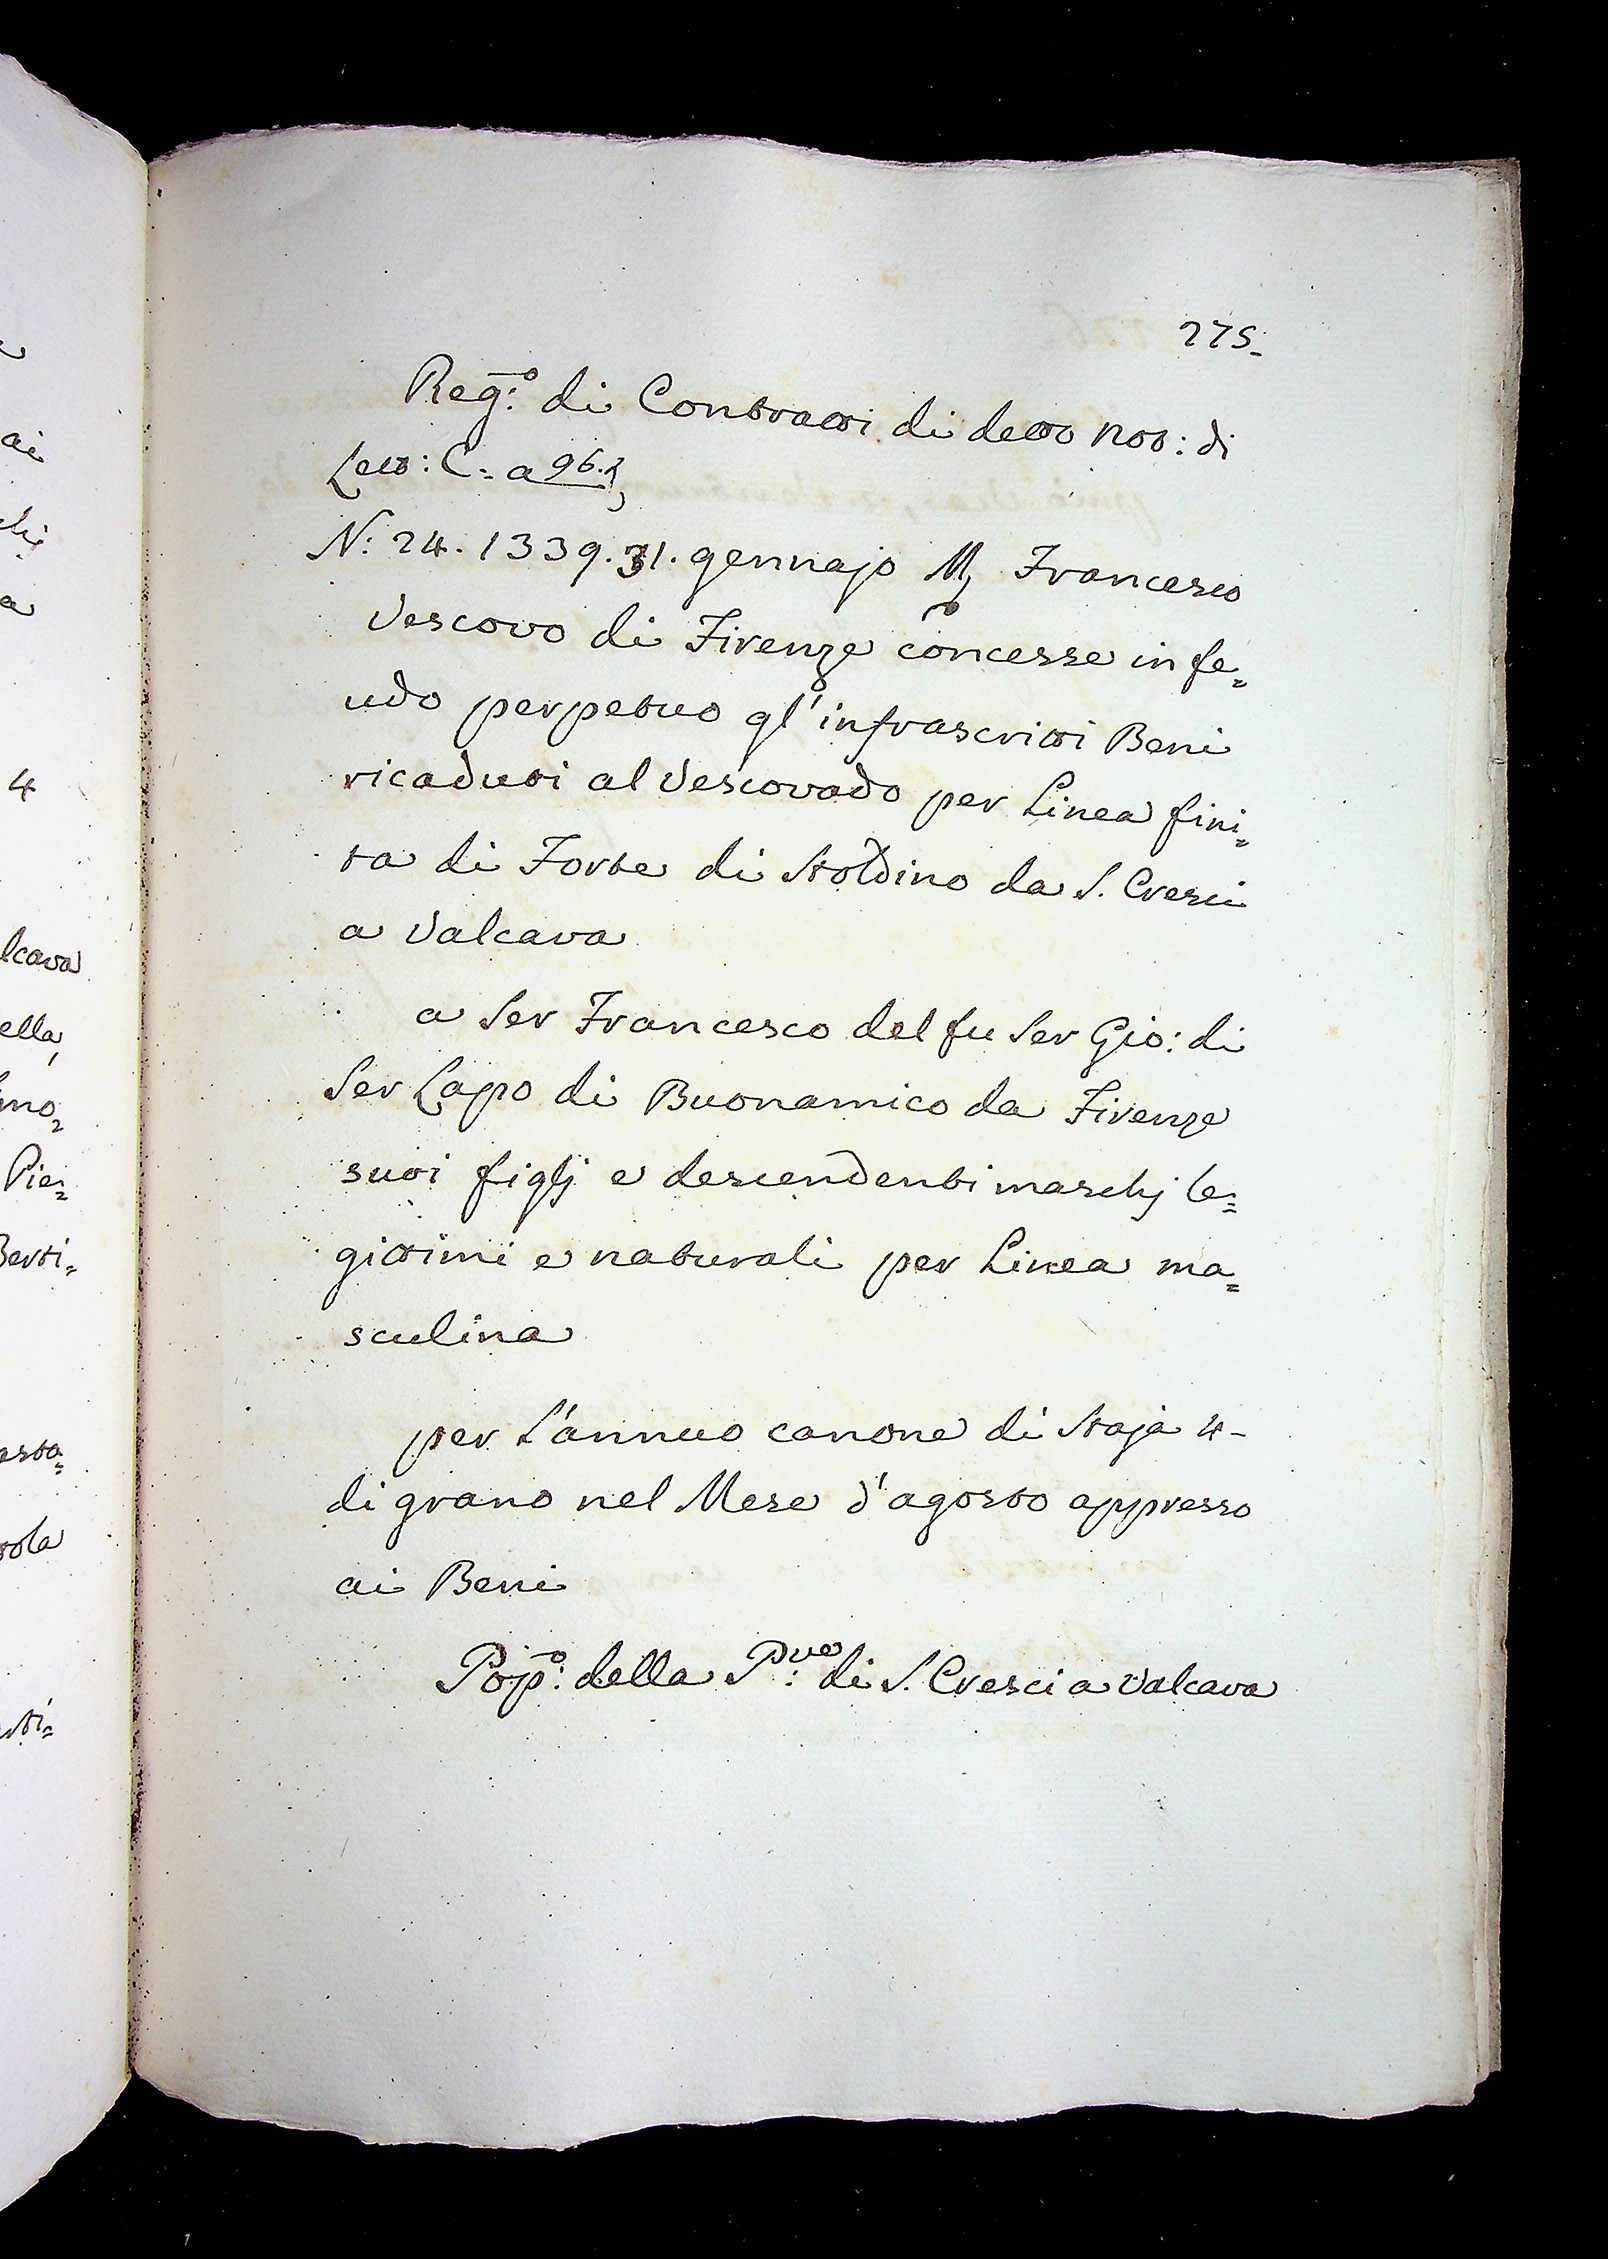 275.
Reg:o di Contratti di detto Not: di
Lett: C: a 96.
N: 24. 1339. 31. gennajo M Francesco
Vescovo di Firenze concesse in fe=
udo perpetuo gl'infrascritti Beni
ricaduti al Vescovado per Linea fini=
ta di Forte di Stoldino da S. Cresci
a Valcava
a Ser Francesco del fu Ser Gio: di
Ser Lapo di Buonamico da Firenze
suoi figlj e descendenti maschj le=
gittimi e naturali per Linea ma=
sculina
per l'annuo canone di Staja 4-
di grano nel Mese d'agosto appresso
ai Beni
Pop:o della P:ve di S. Cresci a Valcava
ai
a
4
lcava
ella,
mo=
Pie=
Berti=